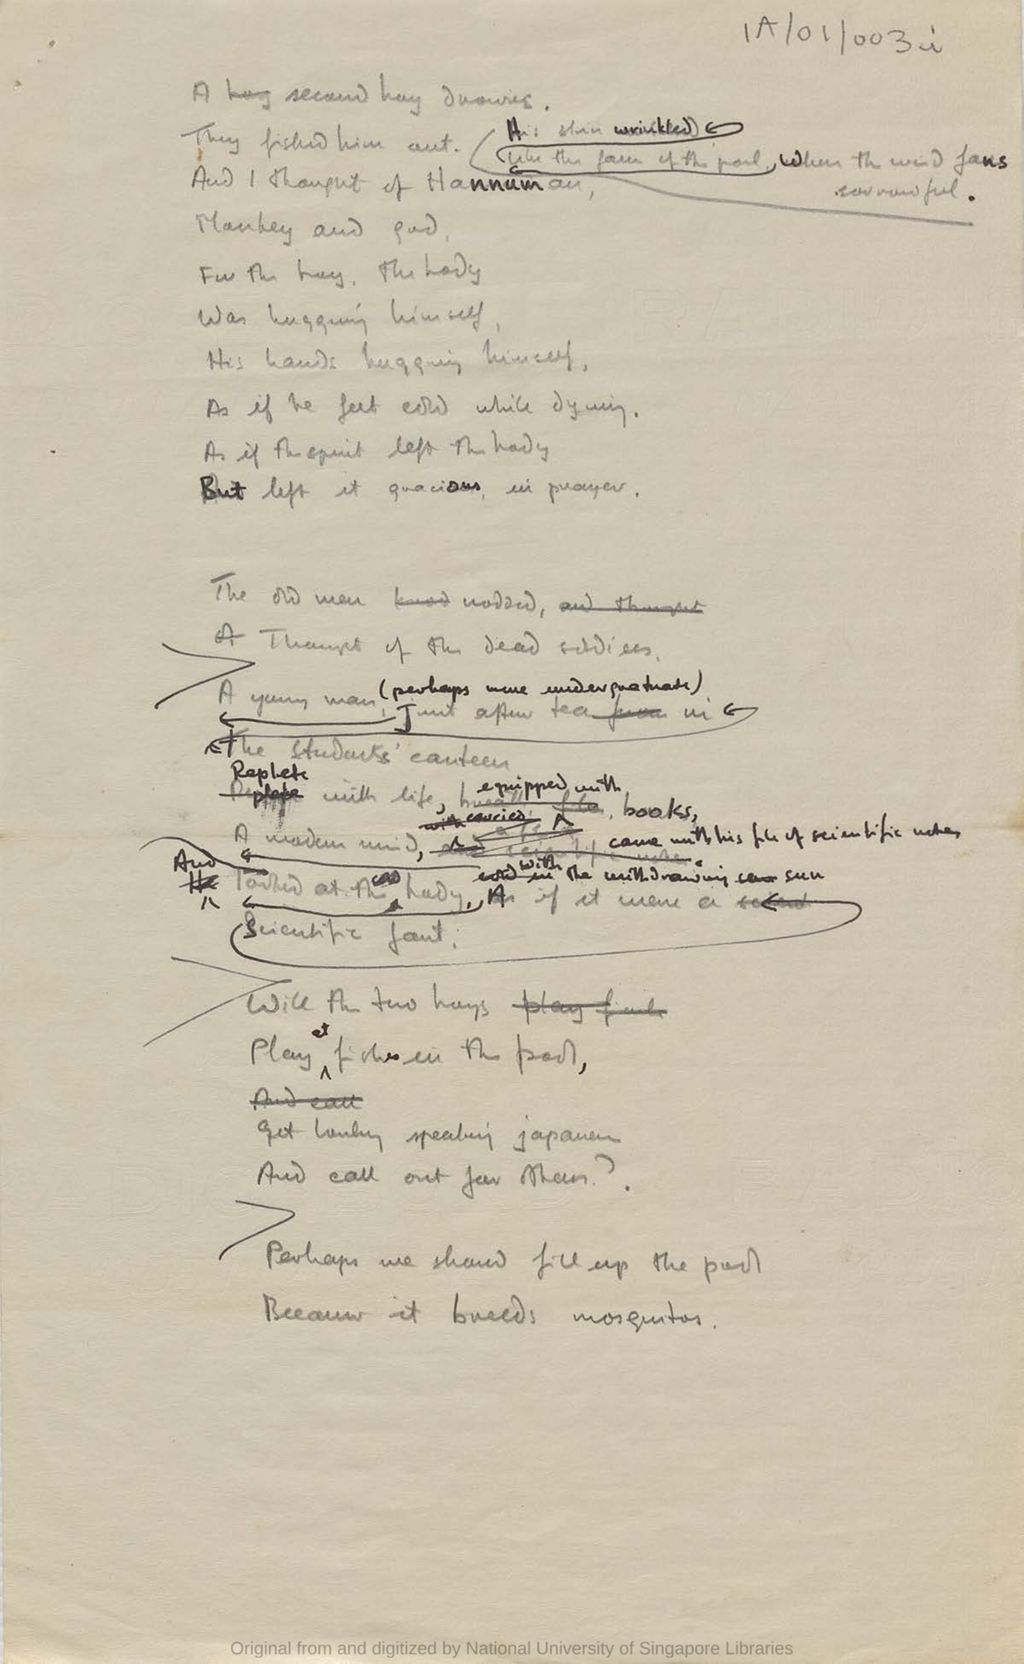 1A/01/003 i
A boy second boy drowns.
They fished him out. His skin wrinkled
like the face of the pool, when the wind fans
sorrowful.
And I thought of Hannuman,
Monkey and god,
For the boy, the body
Was hugging himself,
His hands hugging himself,
As if he felt cold while dying.
As if the spirit left the body
But left it gracious, in prayer.
The old man nodded, and thought
A Thought of the dead soldiers.
A young man, (perhaps were undergraduate)
Just after tea from in
The students' canteen
Replete
with life, equipped with books,
carried
A modern mind, came with his file of scientific notes
And with the withdrawing sun
He looked at the body, As if it were a
Scientific fact.
Will the two boys play
Play at fishes in the pool,
And call
Get lonely speaking japanese
And call out for others?.
Perhaps we should fill up the pool
Because it breeds mosquitos.
Original from and digitized by National University of Singapore Libraries